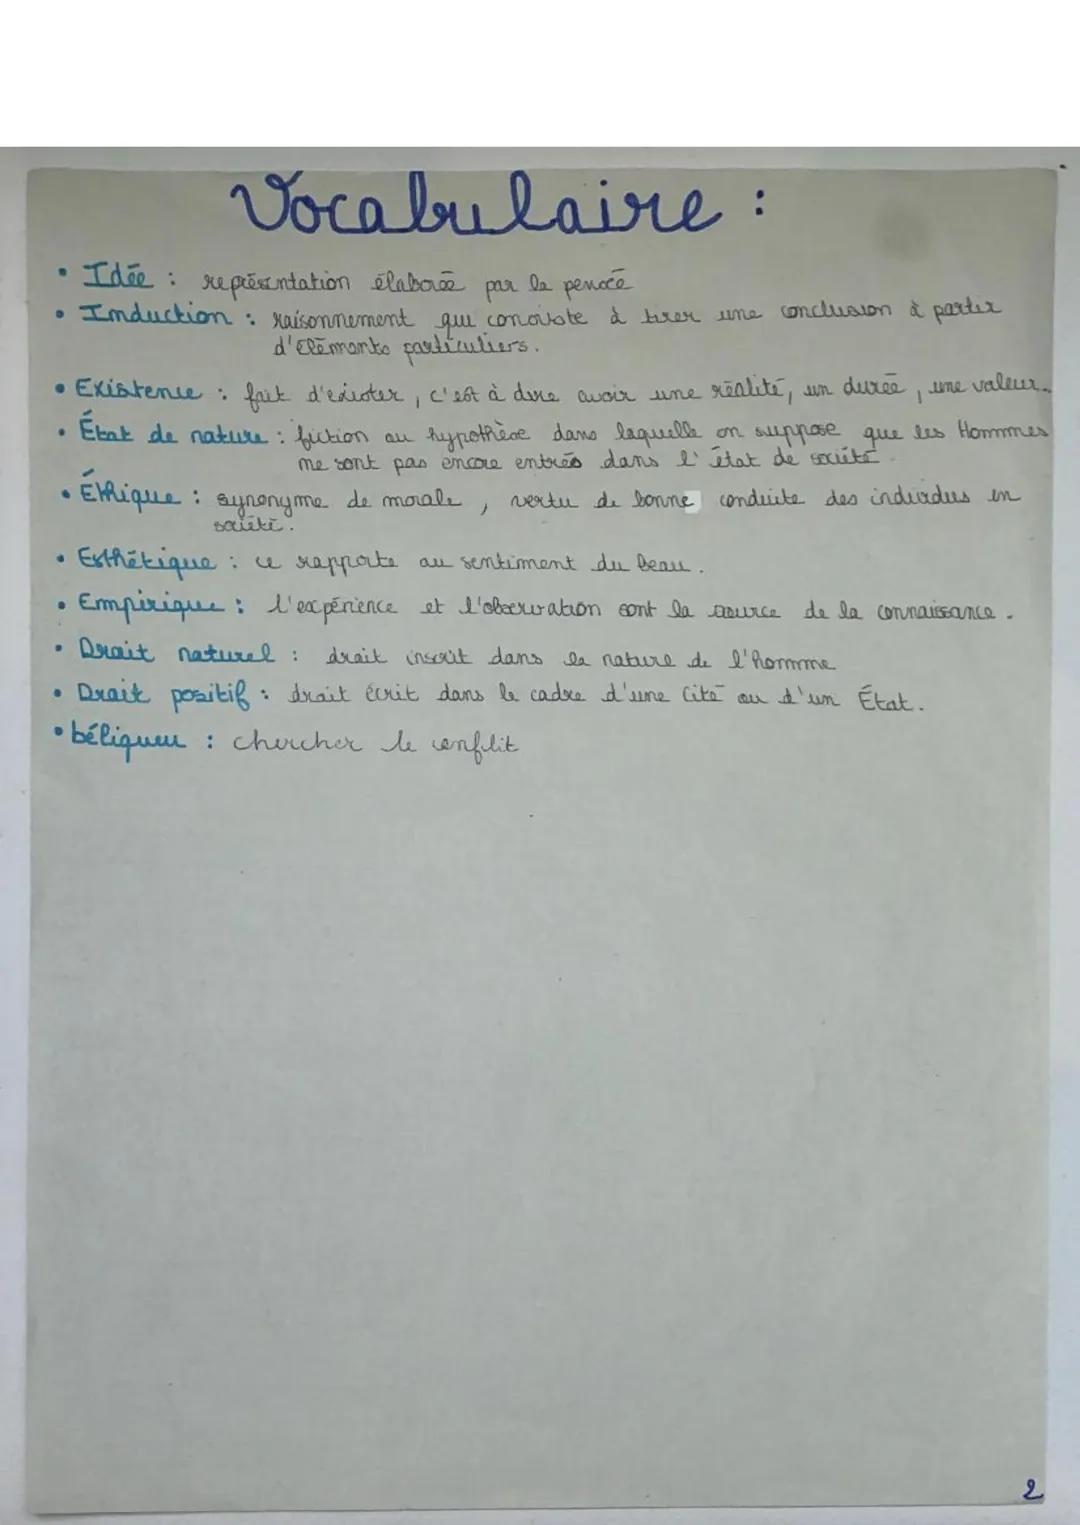 Vocabulaire :
• Idée : représentation élaborée par la pensée
• Induction : raisonnement qui consiste à tirer une conclusion à partir
d'éléments particuliers.
• Existence : fait d'exister, c'est à dire avoir une réalité, un durée, une valeur.
• État de nature : fiction ou hypothèse dans laquelle on suppose que les Hommes
ne sont pas encore entrés dans l'état de société.
• Éthique : synonyme de morale, vertu de bonne conduite des individus en
société.
• Esthétique : ce rapporte au sentiment du beau.
• Empirique : l'expérience et l'observation sont la source de la connaissance.
• Droit naturel : droit inscrit dans la nature de l'homme
• Droit positif : droit écrit dans le cadre d'une Cité ou d'un État.
• béliqueu : chercher le conflit
2